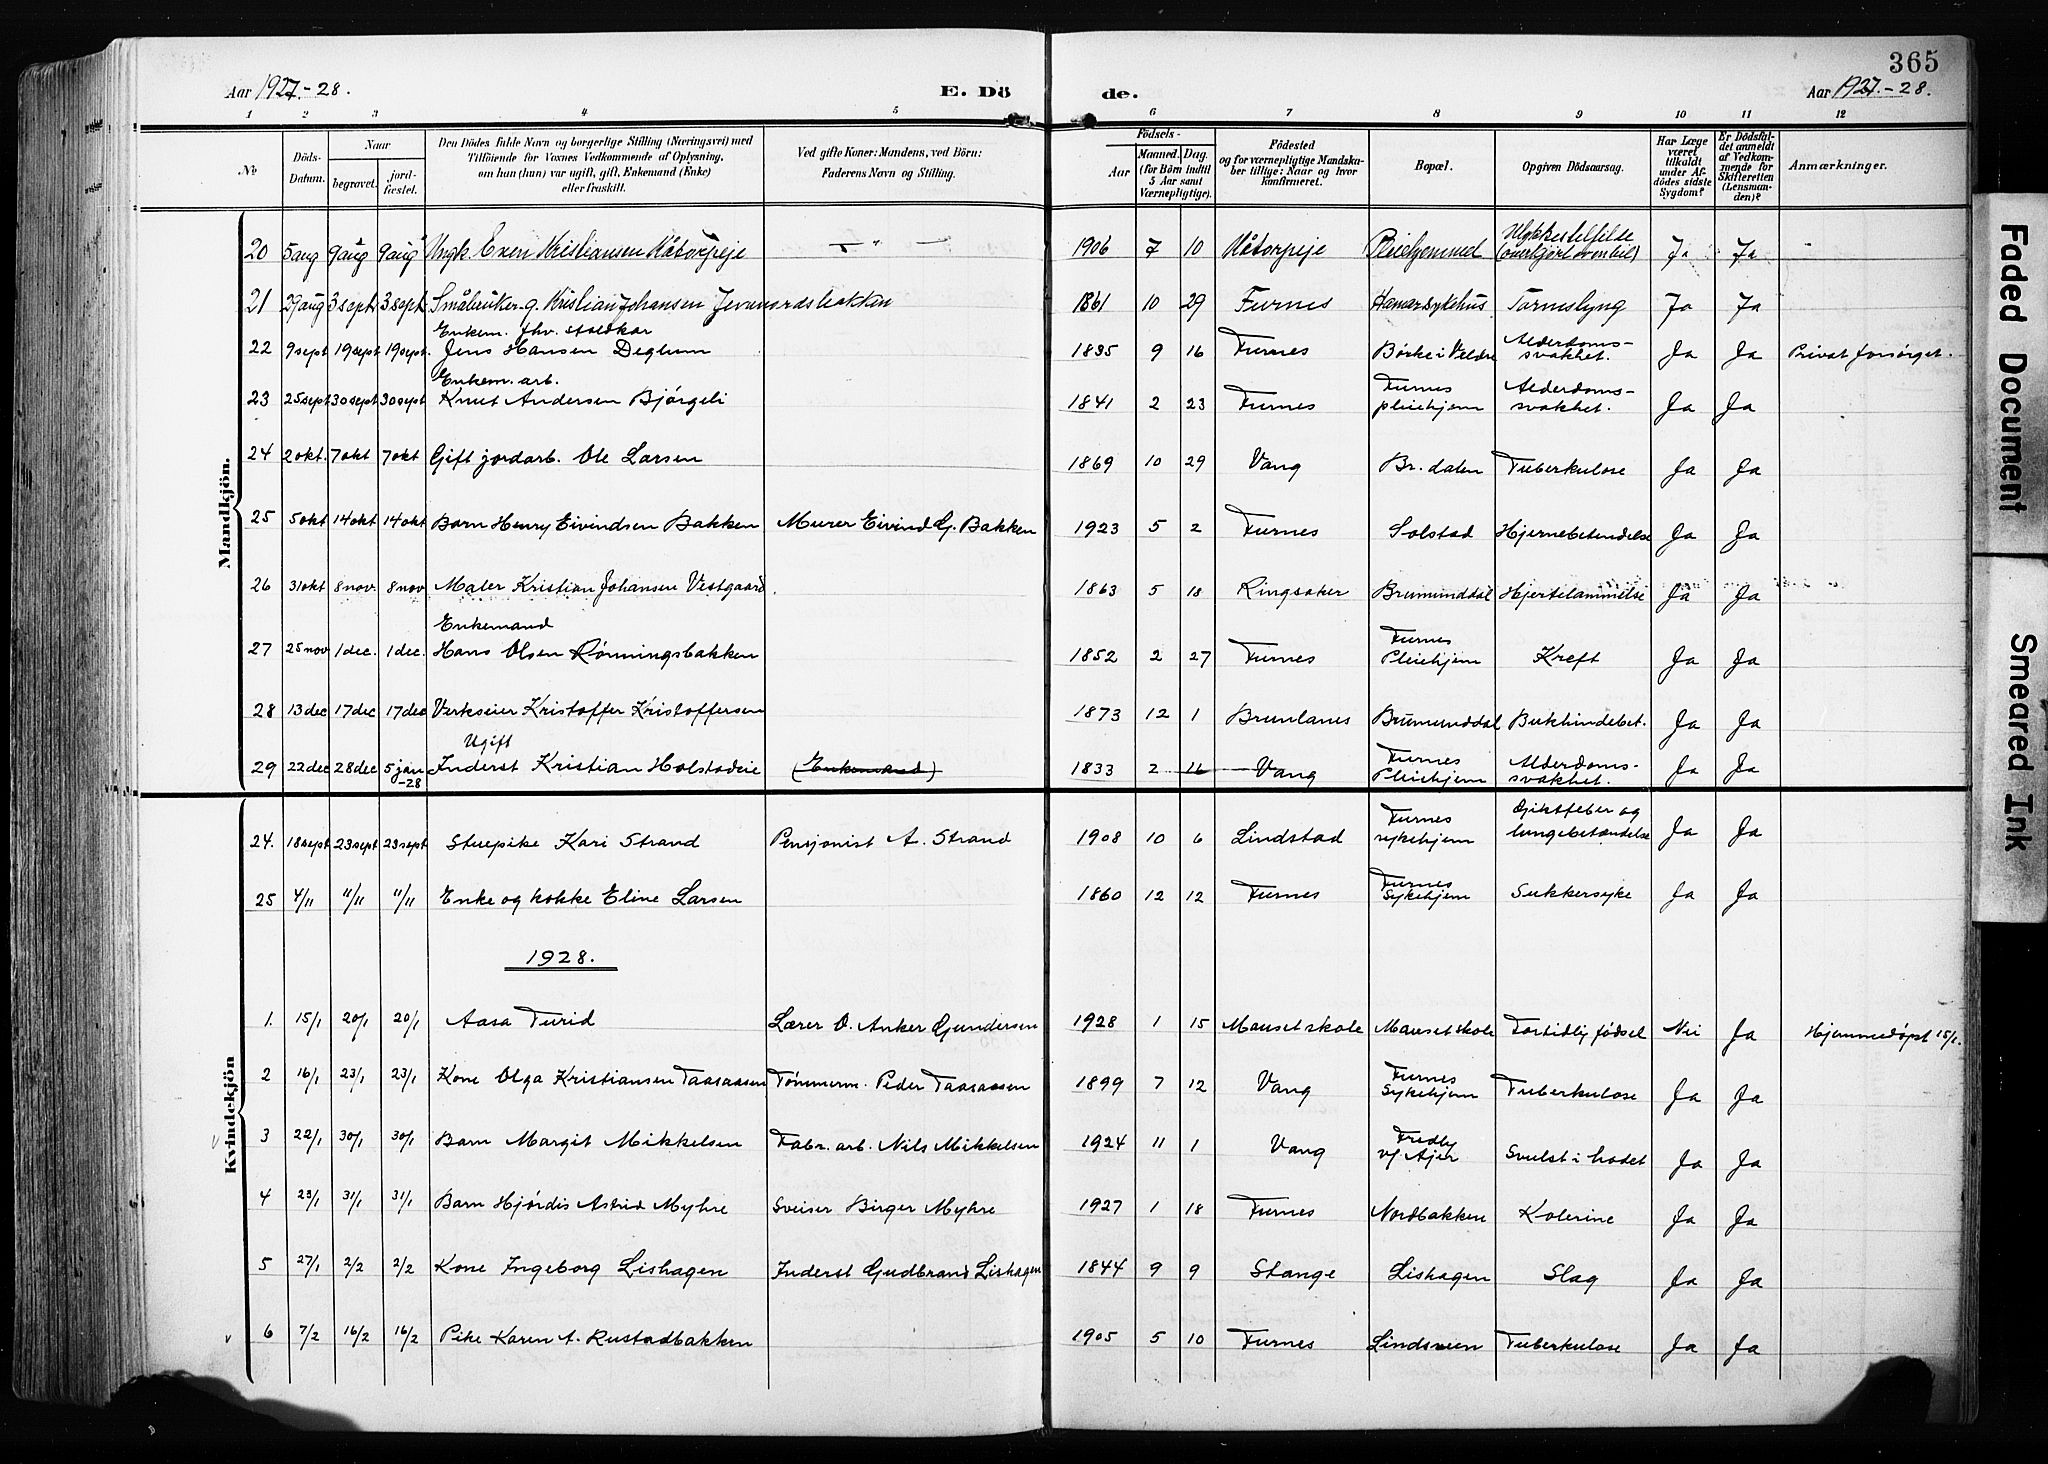 365
Aar 1927.-28.
E. Dö
de.
Aar 1927.-28.
1 2 3 4 5 6 7 8 9 10 11 12
No
Döds-Datum.
Naar
begravet.
jord-fæstet.
Den Dödes fulde Navn og borgerlige Stilling (Næringsvei) med
Tilföiende for Voxnes Vedkommende af Oplysning,
om hun (han) var ugift, gift, Enkemand (Enke)
eller fraskilt.
Ved gifte Koner: Mandens, ved Börn:
Faderens Navn og Stilling.
Födsels-
Aar
Maaned. Dag.
(for Börn indtil
5 Aar samt
Værnepligtige).
Födested
og for værnepligtige Mandska-
ber tillige: Naar og hvor
konfirmeret.
Bopæl.
Opgiven Dödsaarsag.
Har Læge
været
tilkaldt
under Af-
dödes sidste
Sygdom?
Er Dödsfal-
det anmeldt
af Vedkom-
mende for
Skifteretten
(Lensman-
den)?
Anmærkninger.
Mandkjön.
20 5 aug 9 aug 9 aug Ungk. Even Kristiansen Kåtorpeje — " — 1906 7 10 Kåtorpeje Pleiehjemmed Ulykkestilfelde (overkjört av en bil) Ja Ja
21 29 aug 3 sept 3 sept Småbruker g. Kristian Johansen 1861 10 29 Furnes Hamar sykehus Ja Ja
22 9 sept 19 sept 19 sept. Enkem. fhv. staldkar Jens Hansen Deglum 1835 9 16 Furnes Börke i Veldre Alderdoms-svakhet. Ja Ja Privat forsörget.
23 25 sept 30 sept 30 sept Enkem. arb. Knut Andersen Bjørgeli 1841 2 23 Furnes Furnes pleiehjem Alderdoms-svakhet. Ja Ja
24 2 okt. 7 okt 7 okt Gift jordarb. Ole Larsen 1869 10 29 Vang Br.dalen Tuberkulose Ja Ja
25 5 okt 14 okt 14 okt Barn Henry Eivindsen Bakken Murer Eivind G. Bakken 1923 5 2 Furnes Solstad Hjernebetendelse Ja Ja
26 31 okt 8 nov. 8 nov Maler Kristian Johansen Vestgaard. 1863 5 18 Ringsaker Brumunddal Hjertelammelse Ja Ja
27 25 nov 1 dec. 1 dec. Enkemand Hans Olsen Rønningsbakken 1852 2 27 Furnes Furnes Pleiehjem Kreft Ja Ja
28 13 dec 17 dec 17 dec Verkseier Kristoffer Kristoffersen 1873 12 1 Brunlanes Brumunddal Bukhindebet. Ja Ja
29 22 dec 28 dec 5 jan -28 Ugift Inderst Kristian Holstadeie (Enkemand) 1833 2 16 Vang Furnes Pleiehjem Alderdoms-svakhet. Ja Ja
Kvindekjön
24. 18 sept 23 sept 23 sept Stuepike Kari Strand Pensjonist A. Strand 1908 10 6 Lindstad Furnes sykehjem Giktfeber og lungebetændelse Ja Ja
25 4/11 11/11 11/11 Enke og kokke Eline Larsen 1860 12 12 Furnes Furnes Sykehjem Sukkersyke Ja Ja
1928.
1. 15/1 20/1 20/1 Aasa Turid Lærer O. Anker Gundersen 1928 1 15 Mauset skole Mauset skole Fortidlig födsel Nei Ja Hjemmedöpt 15/1.
2 16/1 23/1 23/1 Kone Olga Kristiansen Taasaasen Tømmerm. Peder Taasaasen 1899 7 12 Vang Furnes Sykehjem Tuberkulose Ja Ja
v 3 22/1 30/1 30/1 Barn Margit Mikkelsen Fabr. arb. Nils Mikkelsen 1924 11 1 Vang Fredly v/ Ajer Svulst i hodet Ja Ja
4 23/1 31/1 31/1 Barn Hjørdis Astrid Myhre Sveiser Birger Myhre 1927 1 18 Furnes Nordbakken Kolerine Ja Ja
5 27/1 2/2 2/2 Kone Ingeborg Lishagen Inderst Gudbrand Lishagen 1844 9 9 Stange Lishagen Slag Ja Ja
v 6 7/2 16/2 16/2 Pike Karen A. Rustadbakken 1905 5 10 Furnes Lindsveen Tuberkulose Ja Ja
Faded Document
Smeared Ink